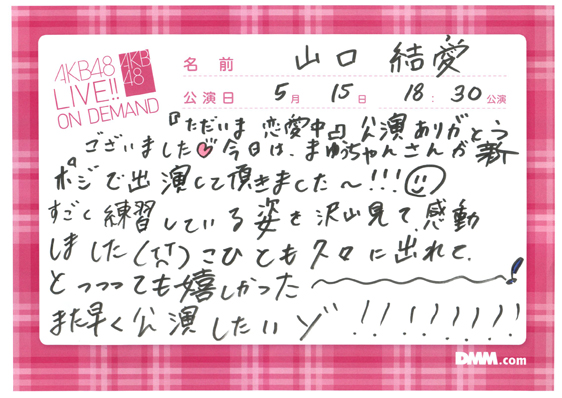 AKB48
LIVE!!
ON DEMAND
AKB
48
名前 山口 結愛
公演日 5月 15日 18:30公演
『ただいま 恋愛中』公演ありがとう
ございました♡今日は、まゆうちゃんさんが新
ポジで出演して頂きました〜!!!
すごく練習している姿を沢山見て、感動
しました(TT)こひとも久々に出れて、
とっっっても嬉しかった〜!
また早く公演したいゾ!!!!!!!!
DMM.com